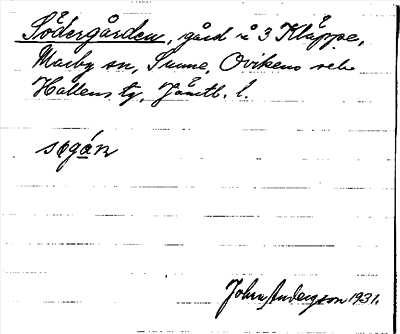 Södergården, gård i 3 Kläppe,
Marby sn, Sunne, Ovikens och
Hallens tg, Jämtl. l.
søgán
John Andersson 1931.